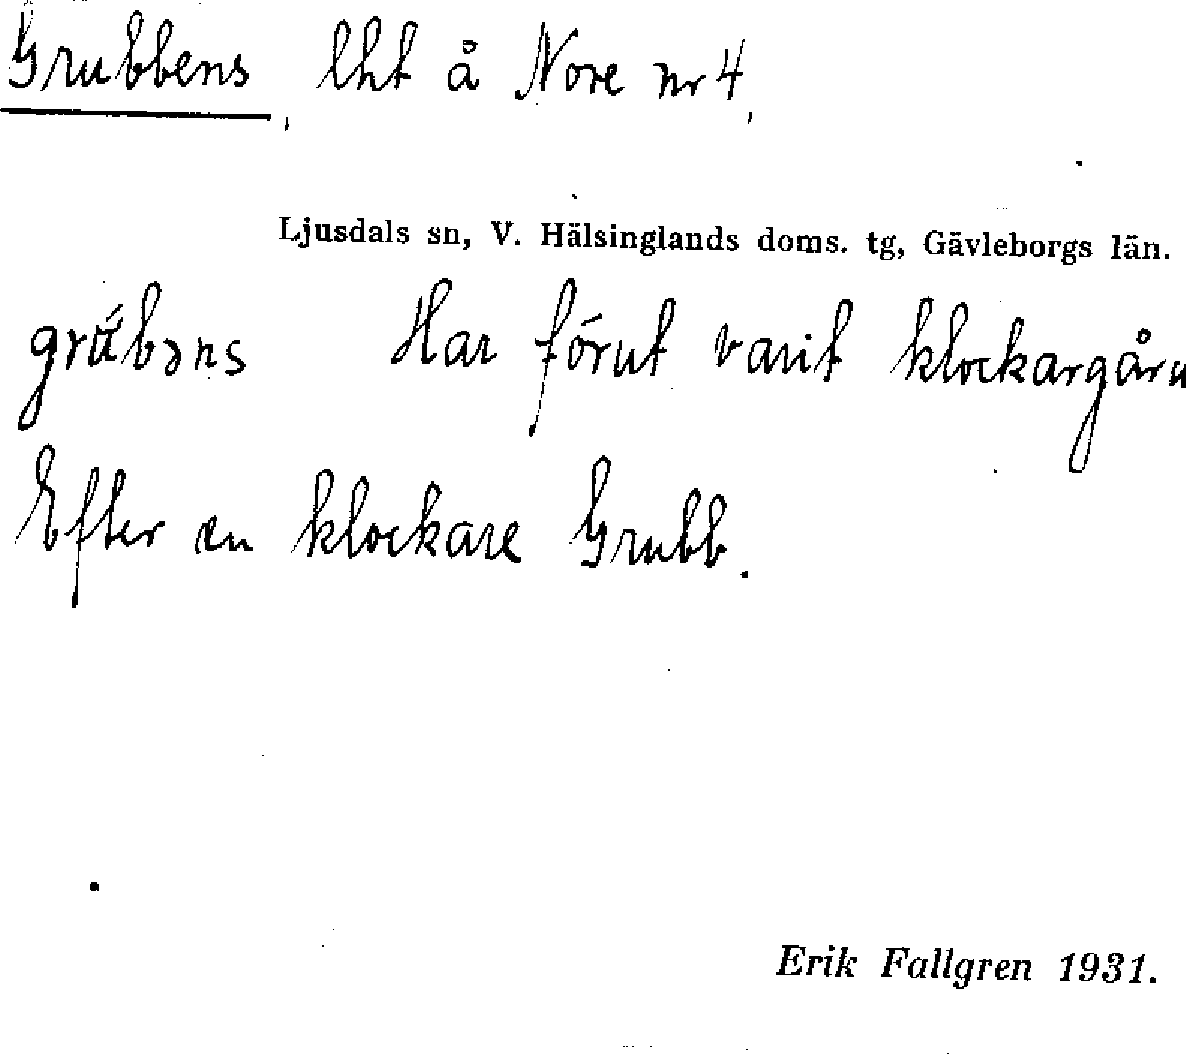 Grubbens, lht å Nore nr 4,
Ljusdals sn, V. Hälsinglands doms. tg, Gävleborgs län.
grúbəns Har förut varit klockargårn
Efter en klockare Grubb.
Erik Fallgren 1931.